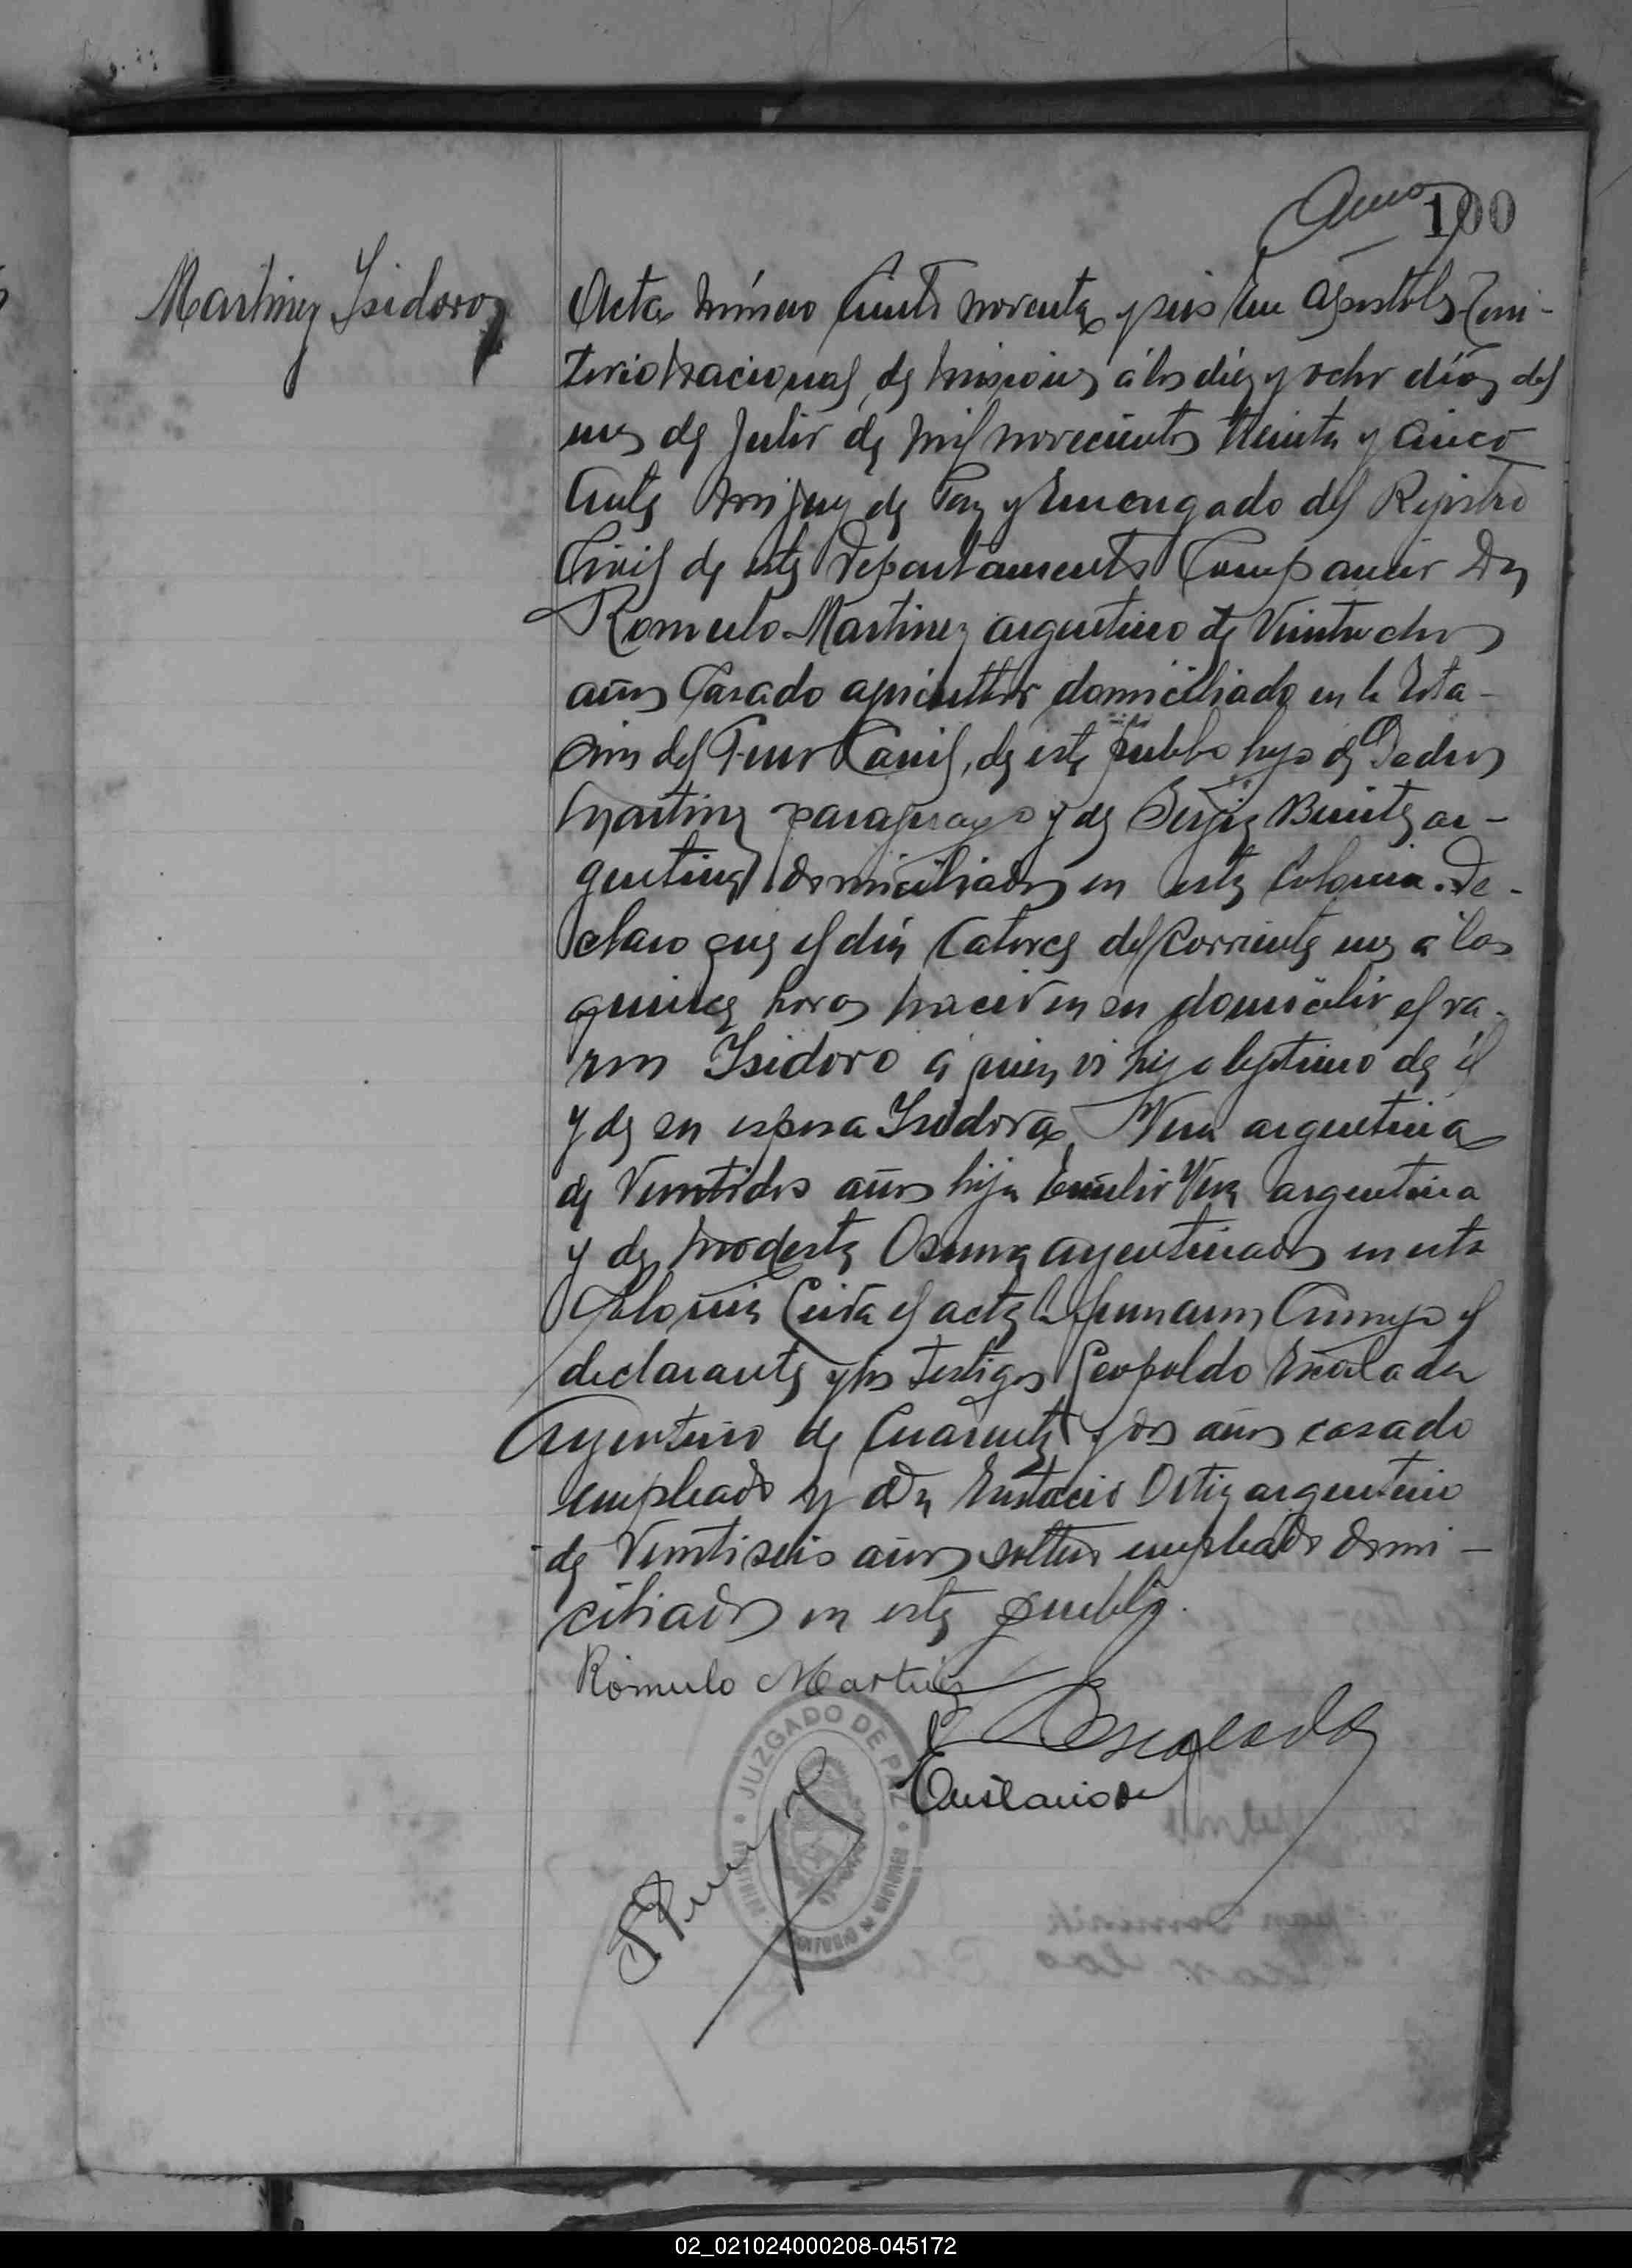 100
Martinez Isidoro
Acta número ciento noventa y seis En Apostoles Terri-
torio Nacional de Misiones á los diez y ocho días del
mes de Julio de mil novecientos treinta y cinco
Ante mi Juez de Paz y Encargado del Registro
Civil de este Departamento Comparecio Don
Romulo Martinez argentino de Veintiocho
años Casado agricultor domiciliado en la Esta-
cion del Ferro Carril, de este pueblo hijo de Pedro
Martinez paraguayo y de Benitez ar-
gentina domiciliados en esta Colonia. De-
claro que el día Catorce del Corriente mes a las
quince horas nacio en su domicilio el va-
ron Isidoro a quien vi hijo legitimo de él
y de su esposa Isidora Vera argentina
de Veintidos años hija Emilio Vera argentina
y de Modesta Osuna argentinados en esta
Colonia Leida el acta la firmaron Conmigo el
declarante y los testigos Leopoldo Escalada
Argentino de Cuarenta y dos años casado
empleado y Don Eustacio Ortiz argentino
de Veintiseis años soltero empleado domi-
ciliados en este pueblo.
Rómulo Martinez
L Escalada
JUZGADO DE PAZ
02_021024000208-045172